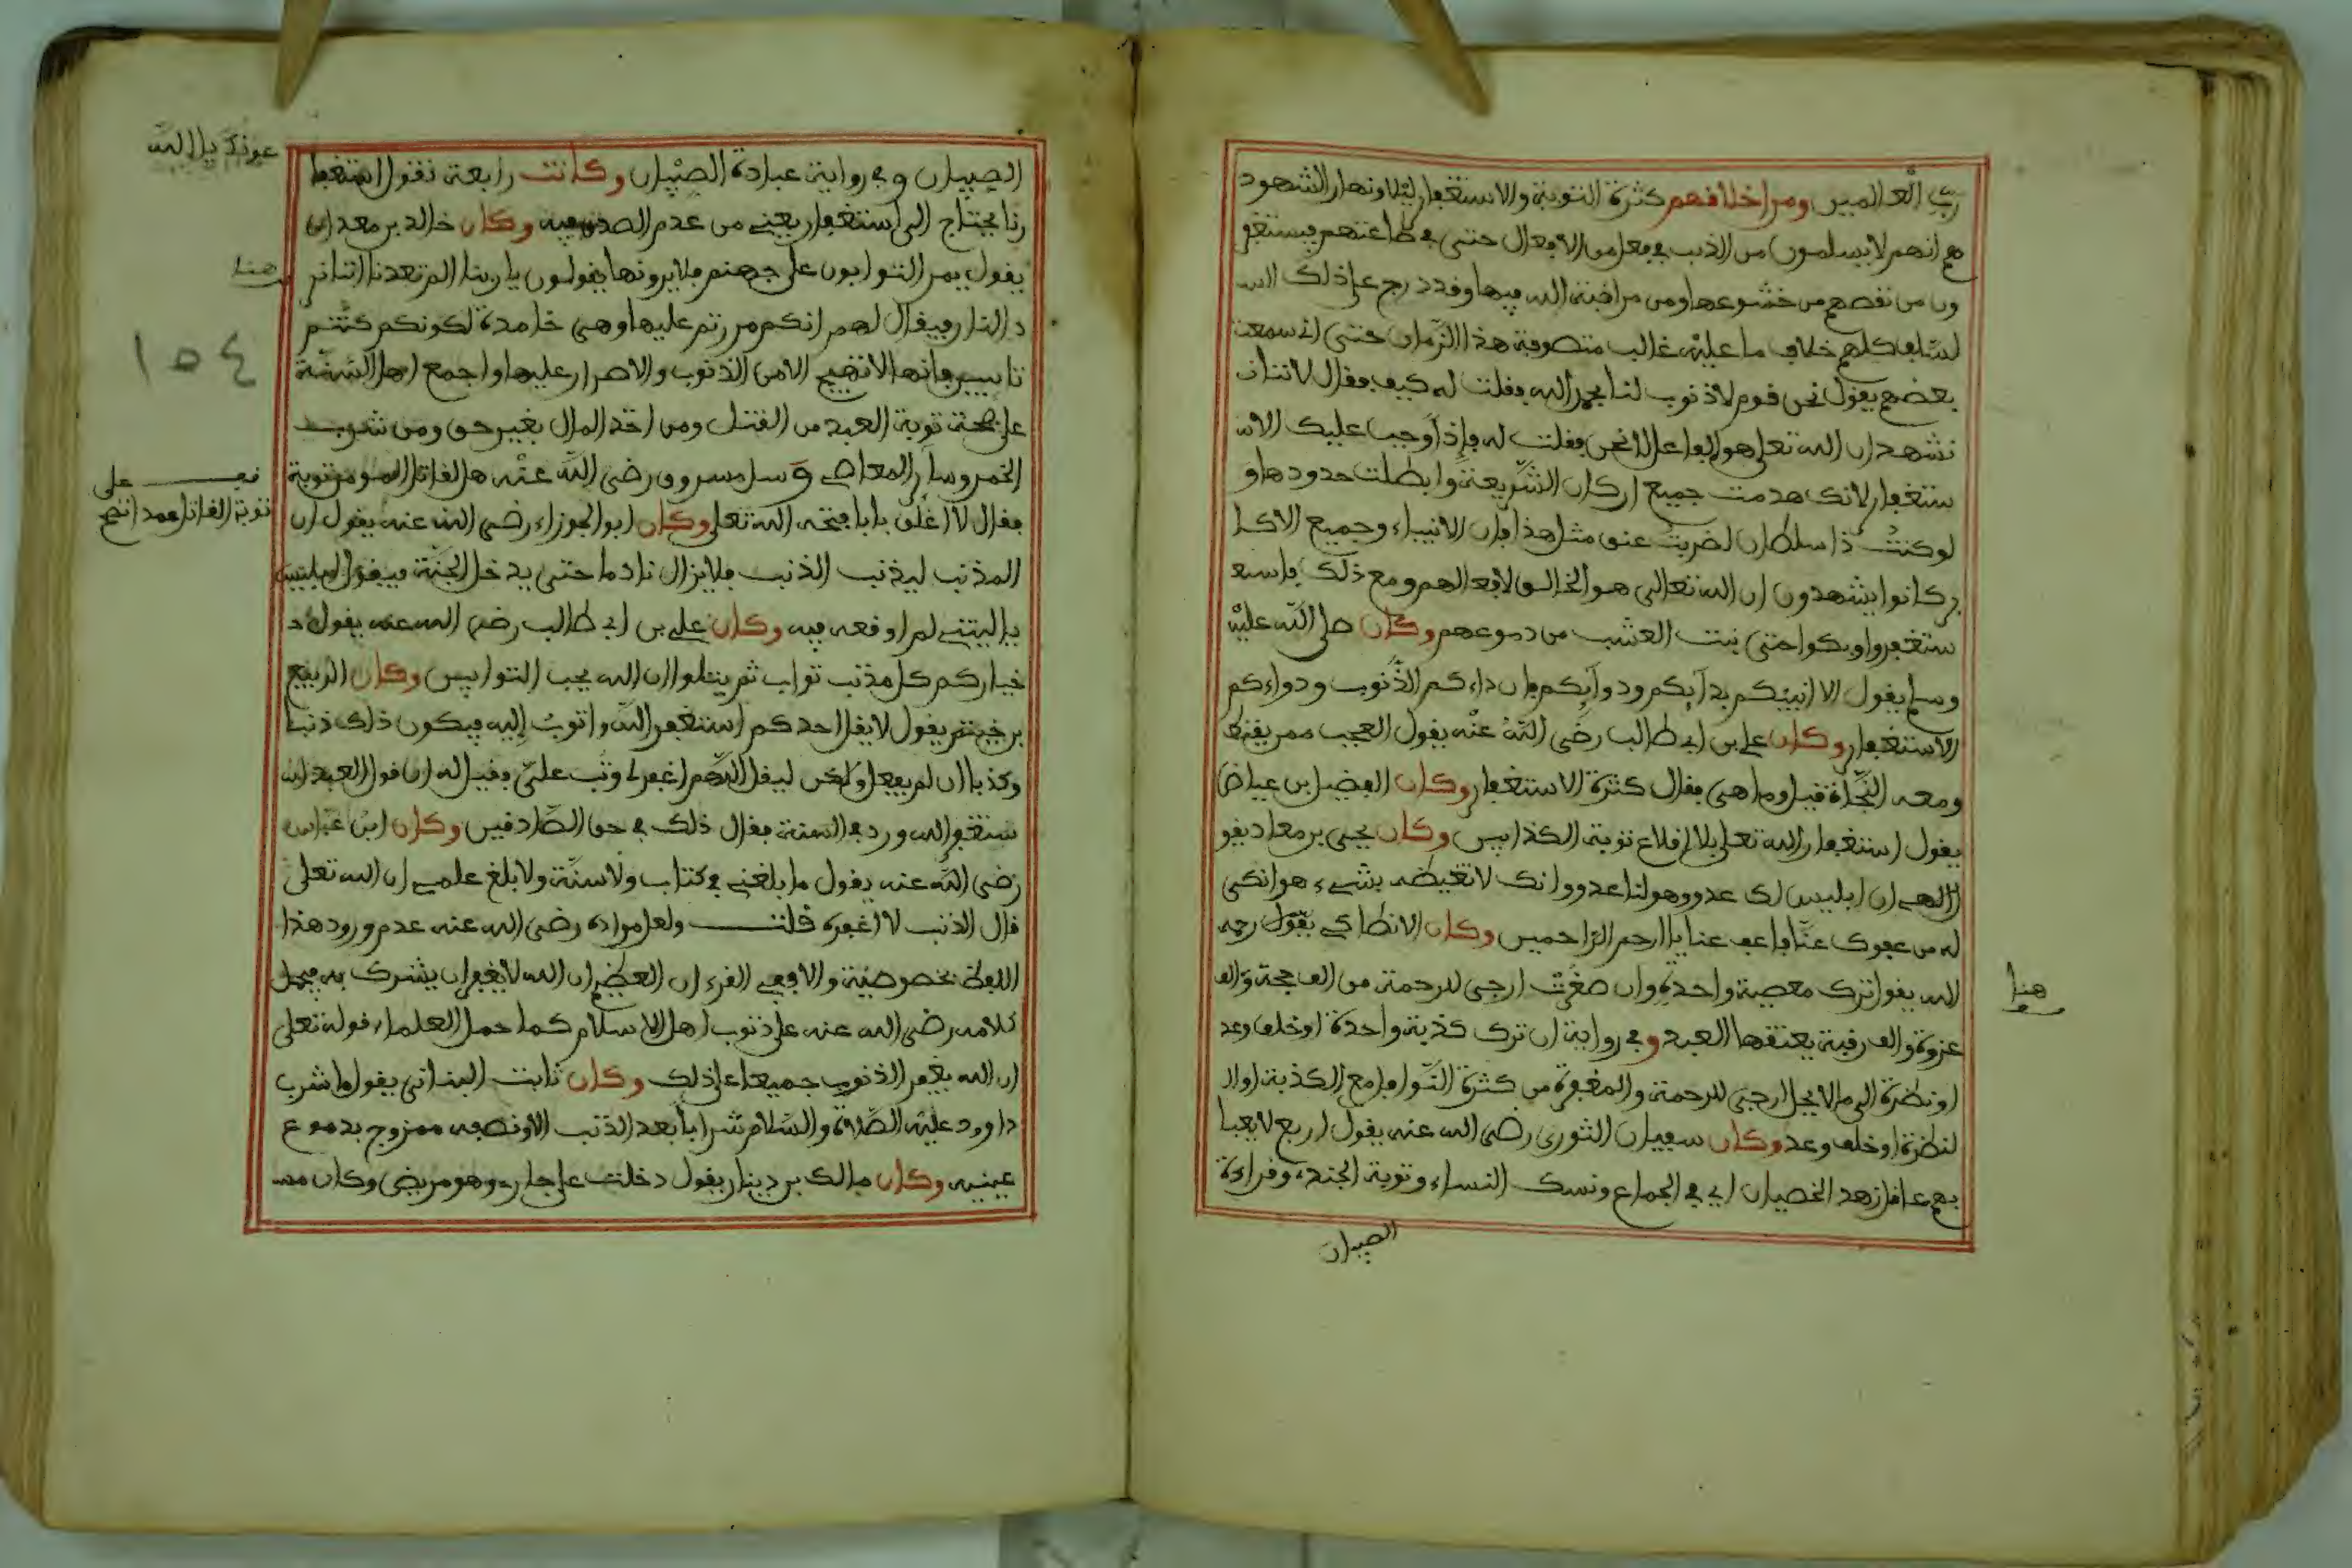 رب العالمين ومن اخلافهم كثرة التوبة والاستغفار ليلا ونهارا لشهود
هم انهم لا يسلمون من الذنب في فعل من الافعال حتى في طاعتهم فيستغفر
ون من نقصهم من خشوعها ومن مراقبة الله فيها وقد درج على ذلك الس
لسلف كلهم خلاف ما عليه غالب متصوفة هذا الزمان حتى اني سمعت
بعضهم يقول نحن قوم لا ذنوب لنا بحمد الله فقلت له كيف فقال لاننا
نشهد ان الله تعلى هو الفاعل لا نحن فقلت له فاذا وجب عليك الاس
ستغفار لانك هدمت جميع اركان الشريعة وابطلت حدودها و
لو كنت ذا سلطان لضربت عنق مثل هذا فان الانبياء وجميع الاكا
بر كانوا يشهدون ان الله تعالى هو الخالق لافعالهم ومع ذلك فاستغ
ستغفروا وبكوا حتى نبت العشب من دموعهم وكان صلى الله عليه
وسلم يقول الا انبيكم بدايكم ودوايكم فان داءكم الذنوب ودواءكم
الاستغفار وكان علي بن ابي طالب رضي الله عنه يقول العجب ممن يقنط
ومعه النجاة قيل وما هي فقال كثرة الاستغفار وكان الفضيل بن عياض
يقول استغفار الله تعلى بلا اقلاع توبة الكذابين وكان يحيى بن معاذ يقو
ل الهي ان ابليس لك عدو وهو لنا عدو وانك لا تغيضه بشيء هو انكى
له من عفوك عنا فاعف عنا يا ارحم الراحمين وكان الانطاكي يقول رحمه
الله يقول ترك معصية واحدة وان صغرت ارجى للرحمة من الف حجة والف
غزوة والف رقبة يعتقها العبد وفي رواية ان ترك كذبة واحدة او خلف وعد
او نظرة الى ما لا يحل ارجى للرحمة والمغفرة من كثرة النوافل مع الكذبة او ال
لنظرة او خلف وعد وكان سفيان الثوري رضي الله عنه يقول اربع لا يعبا
بهم عاقل زهد الخصيان اي في الجماع ونسك النساء وتوبة الجند وقراءة
الصبيان
هنا
الصبيان وفي رواية عبادة الصبيان وكانت رابعة تقول استغفا
رنا يحتاج الى استغفار يعني من عدم الصدق فيه وكان خالد بن معدان
يقول يمر التوابون على جهنم فلا يرونها يقولون يا ربنا الم تعدنا اننا نر
د النار فيقال لهم انكم مررتم عليها وهي خامدة لكونكم كنتم
تايبين فانها لا تهيج الا من الذنوب والاصرار عليها واجمع اهل السنة
على صحة توبة العبد من القتل ومن اخذ المال بغير حق ومن شرب
الخمر وساير المعاصي وسيل مسروق رضي الله عنه هل لقاتل المومن توبة
فقال لا اغلق بابا فتحه الله تعلى وكان ابو الجوزاء رضي الله عنه يقول ان
المذنب ليذنب الذنب فلا يزال نادما حتى يدخل الجنة فيقول ابليس
يا ليتني لم اوقعه فيه وكان علي بن ابي طالب رضي الله عنه يقول
خياركم كل مذنب تواب ثم يتلوا ان الله يحب التوابين وكان الربيع
بن خيثم يقول لا يقل احدكم استغفر الله واتوب اليه فيكون ذلك ذنبا
وكذبا ان لم يفعل ولكن ليقل اللهم اغفر لي وتب علي فقيل له ان قول العبد ا
ستغفر الله ورد في السنة فقال ذلك في حق الصادقين وكان ابن عباس
رضي الله عنه يقول ما بلغني في كتاب ولا سنة ولا بلغ علمي ان الله تعلى
قال لذنب لا اغفره قلت ولعل مراده رضي الله عنه عدم ورود هذا
اللفظ بخصوصية والا ففي القرءان العظيم ان الله لا يغفر ان يشرك به فيحمل
كلامه رضي الله عنه على ذنوب اهل الاسلام كما حمل العلماء قوله تعلى
ان الله يغفر الذنوب جميعا على ذلك وكان ثابت البناني يقول ما شرب
داوود عليه الصلاة والسلام شرابا بعد الذنب الا ونصفه ممزوج بدموع
عينيه وكان مالك بن دينار يقول دخلت على جار وهو مريض وكان مس
هنا
١٥٤
على
توبة القاتل عمدا انتهى